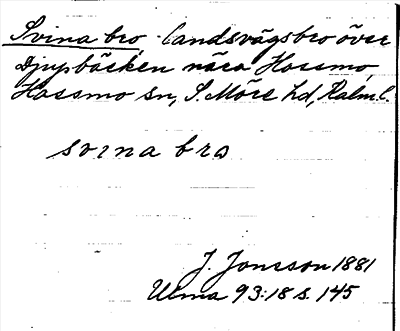 Svina bro, landsvägsbro över
Djupbäcken nära Hossmo,
Hossmo sn, S. Möre hd, Kalm. l.
svina bro
J. Jonsson 1881
Ulma 93:18 s. 145